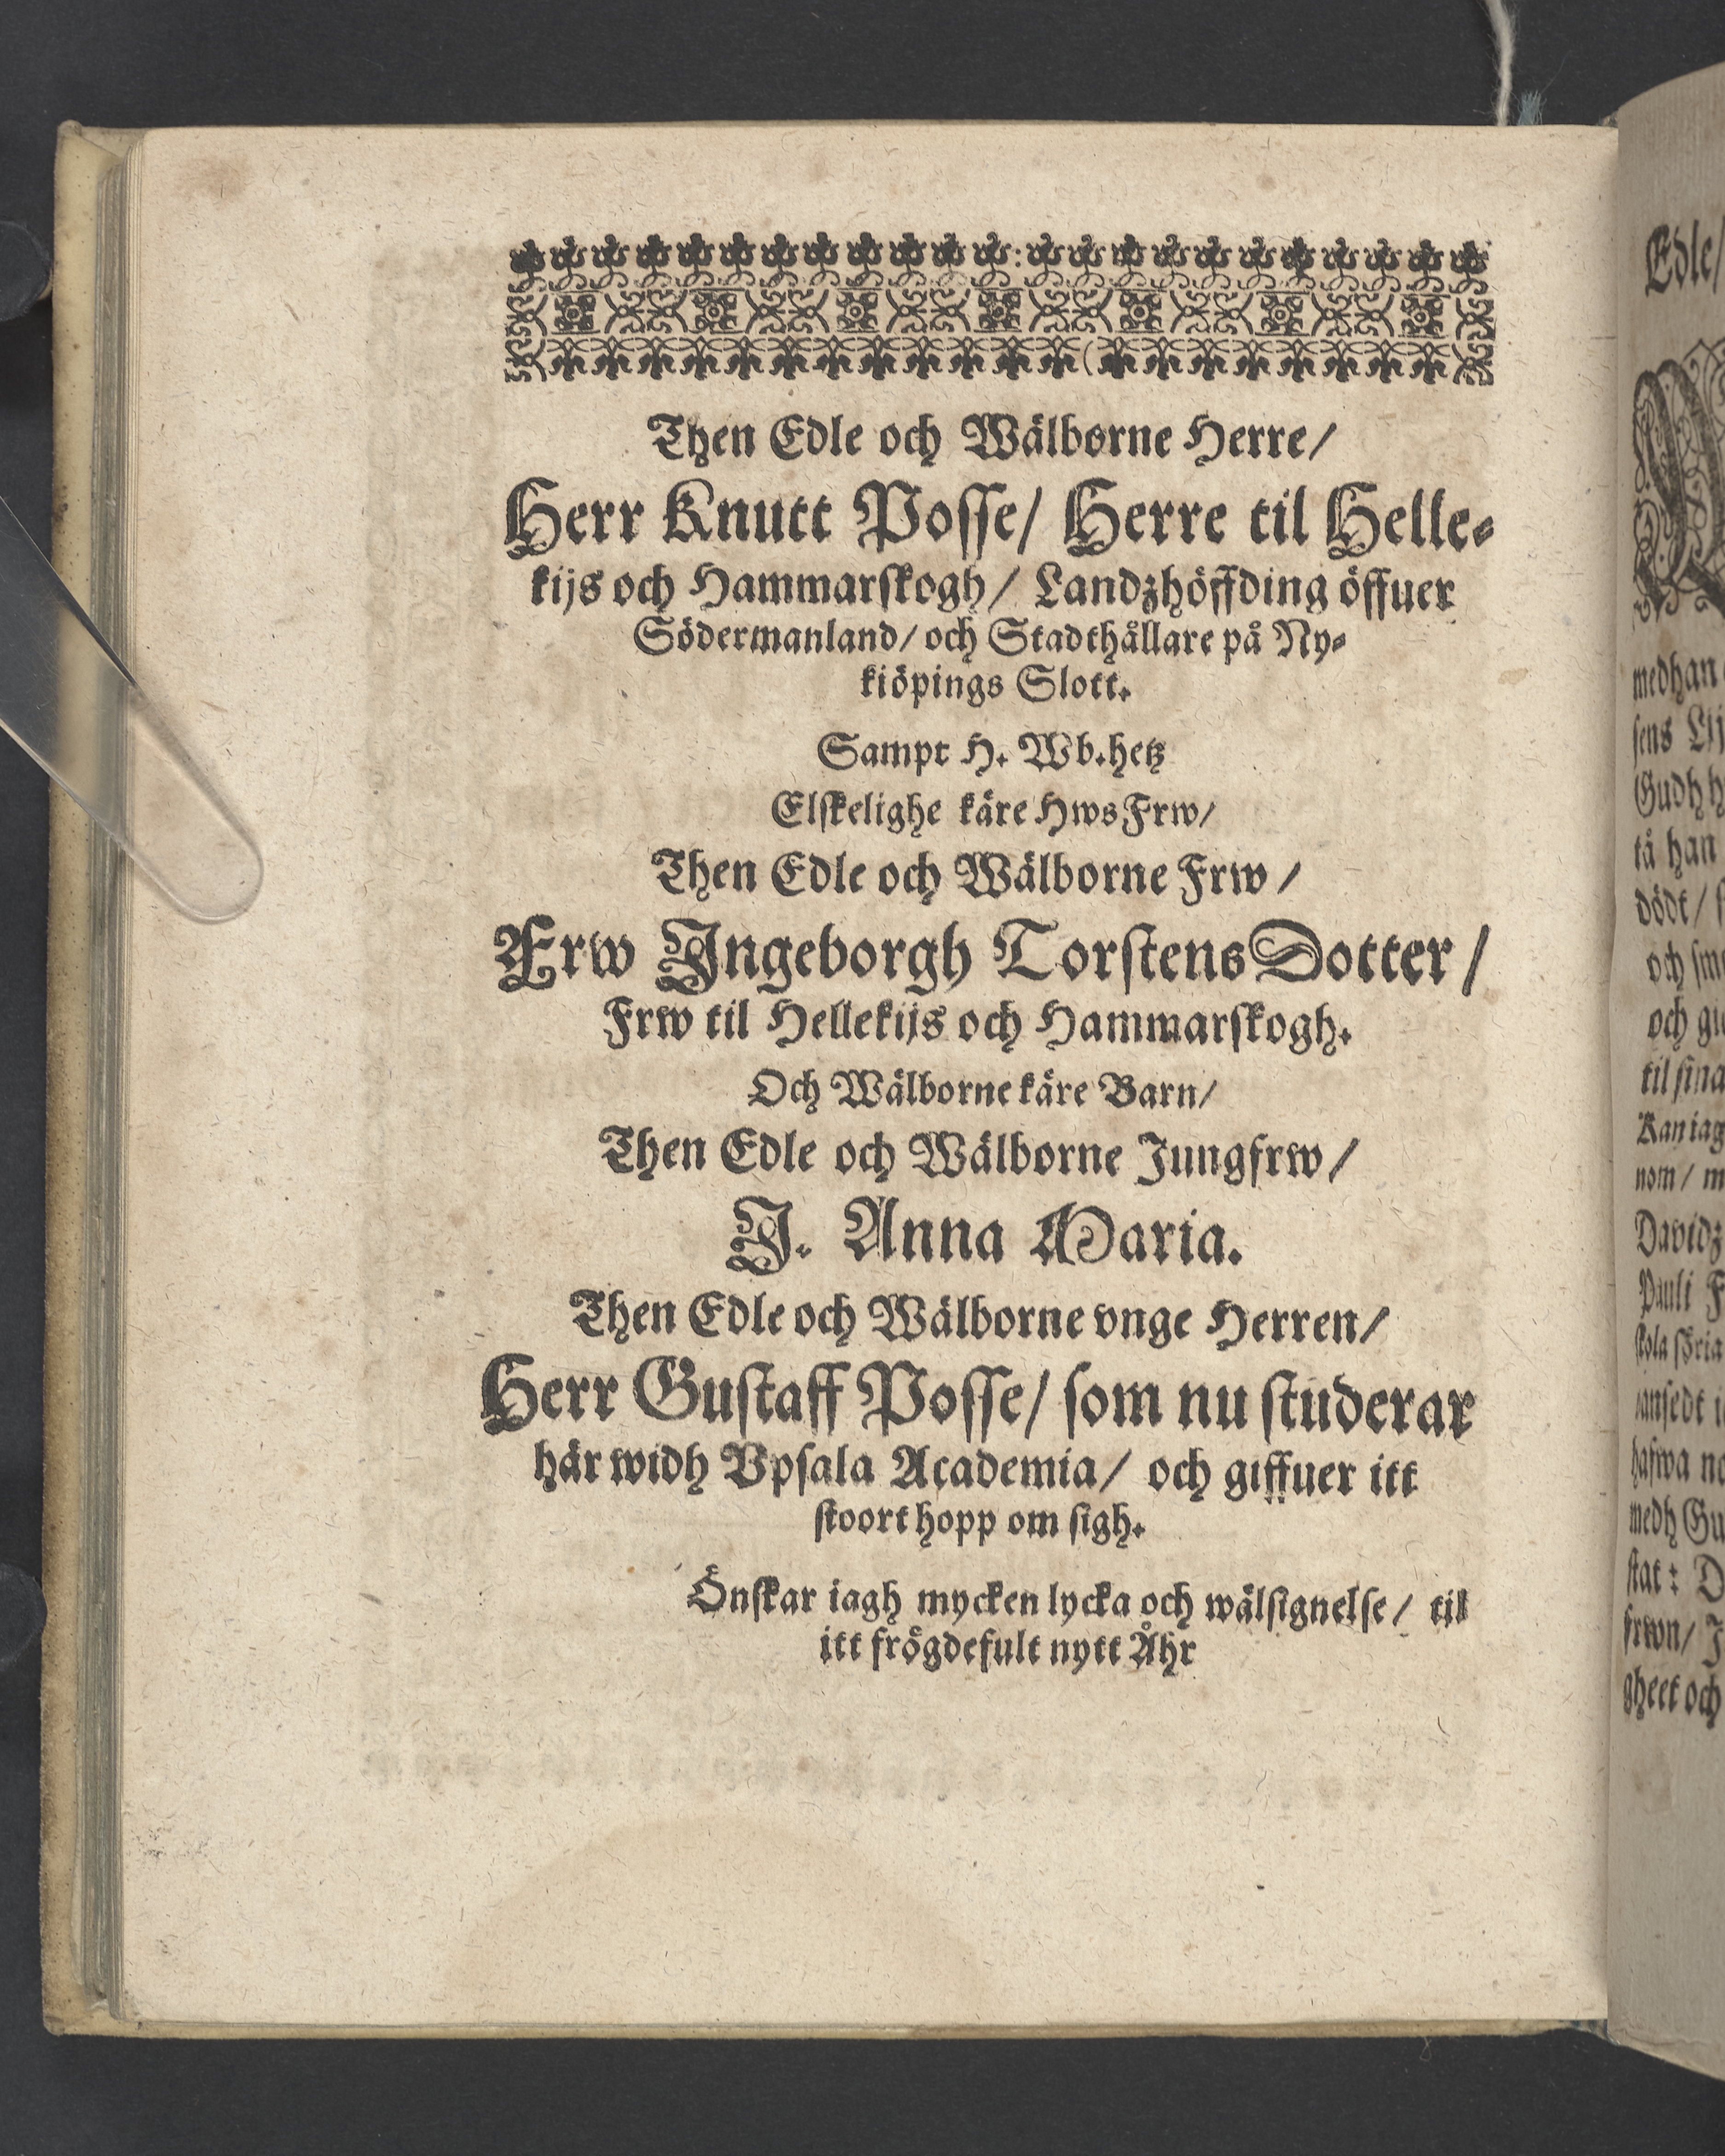 Then Edle och Wälborne Herre/
Herr Knutt Posse/ Herre til Helle-
kijs och Hammarskogh/ Landzhöffding öffuer
Södermanland/ och Stadthållare på Ny-
kiöpings Slott.
Sampt H. Wb.hetz
Elskelighe käre HwsFrw/
Then Edle och Wälborne Frw/
Frw Ingeborgh TorstensDotter/
Frw til Hellekijs och Hammarskogh.
Och Wälborne käre Barn/
Then Edle och Wälborne Jungfrw/
J. Anna Maria.
Then Edle och Wälborne vnge Herren/
Herr Gustaff Posse/ som nu studerar
här widh Vpsala Academia/ och giffuer itt
stoort hopp om sigh.
Önskar iagh mycken lycka och wälsignelse/ til
itt frögdefult nytt Åhr
Edle/
medhan
sens
Gudh
tå han
dödt/
och
och
til sina
Kan iag
nom/
Davidz
Pauli
skola
ansedt
hafwa
medh
stat:
frwn/
gheet och